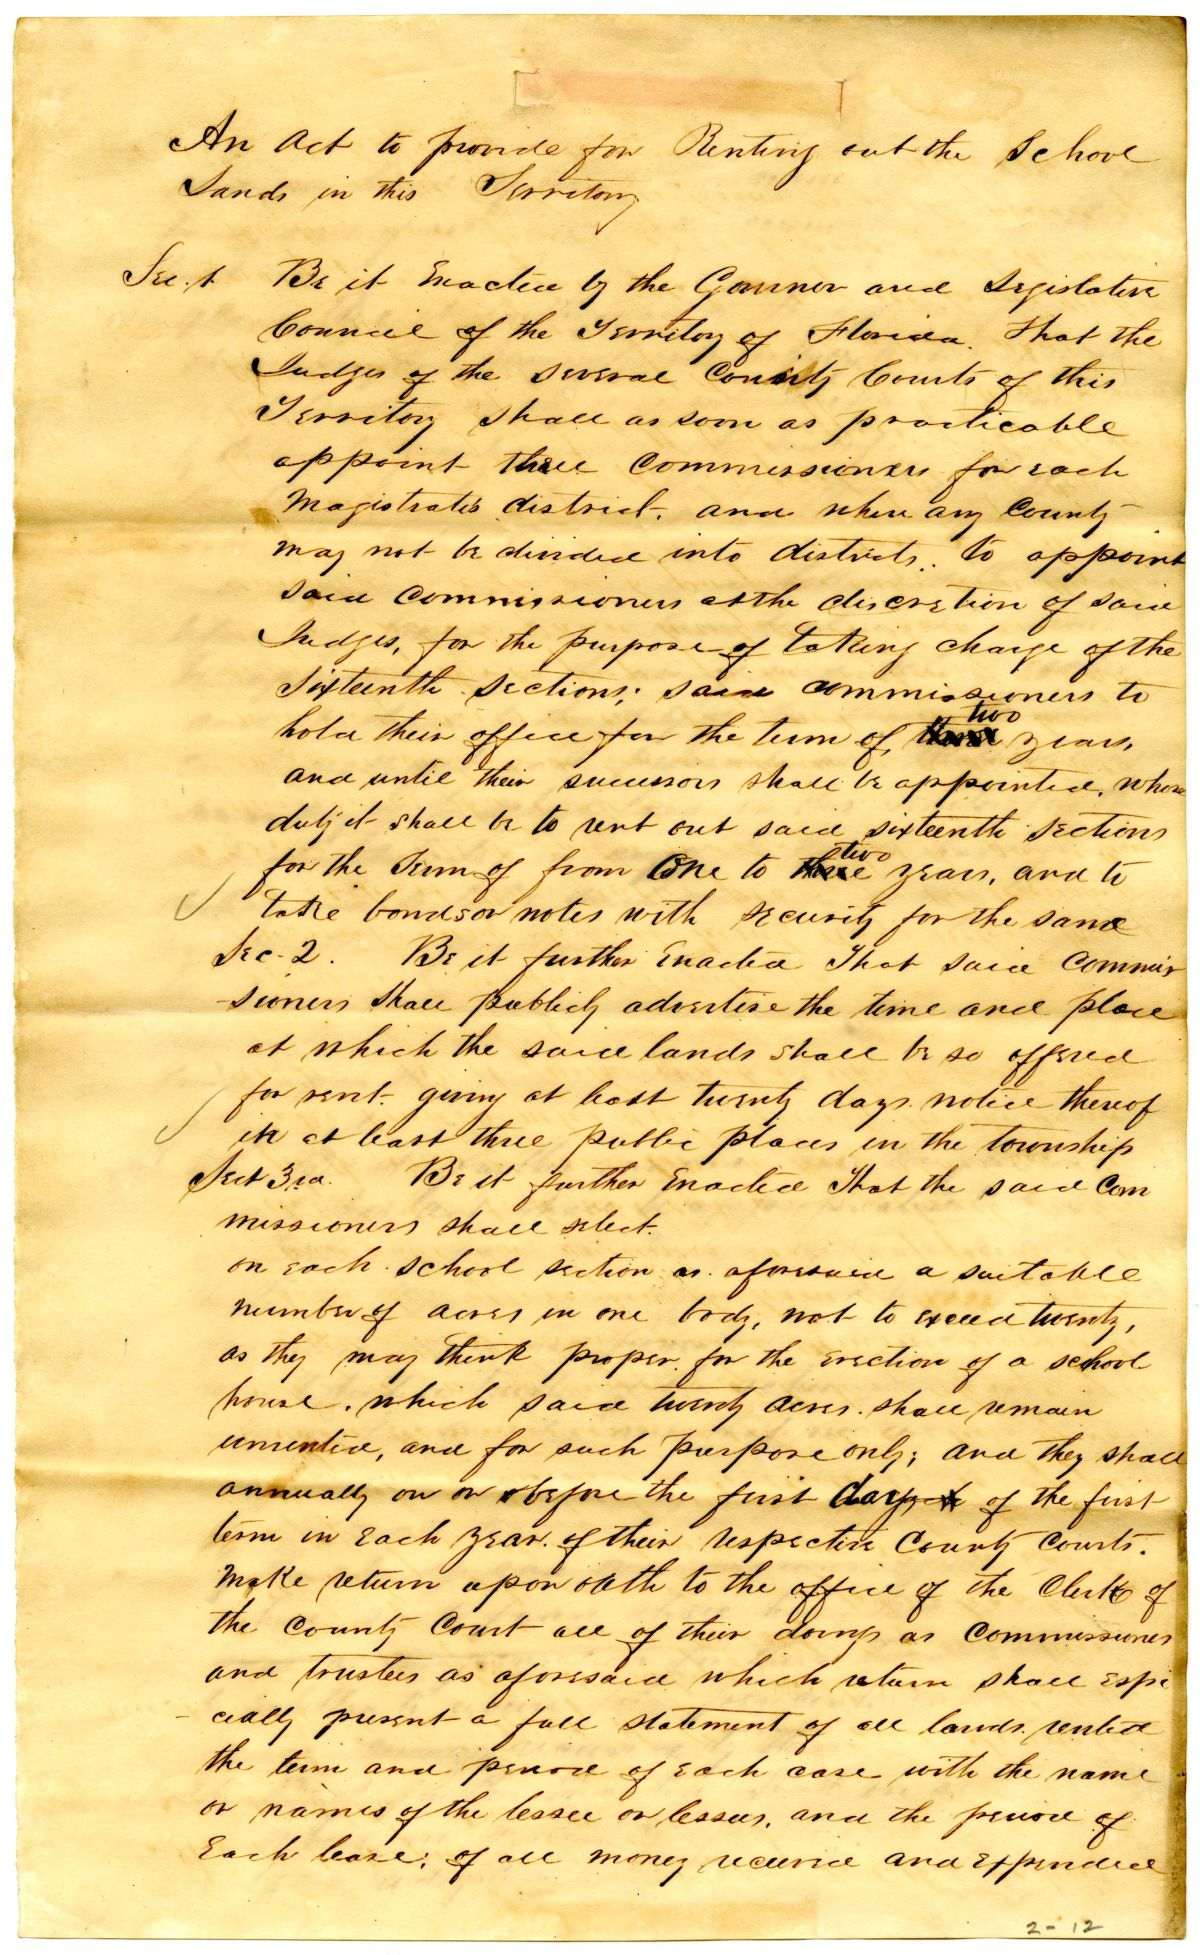 An Act to provide for Renting out the School
Lands in this Territory.
Sec. 1. Be it Enacted by the Governor and Legislative
Council of the Territory of Florida. That the
Judges of the several County Courts of this
Territory shall as soon as practicable
appoint three Commissioners for each
Magistrate's district. and where any County
may not be divided into districts. to appoint
said Commissioners at the discretion of said
Judges, for the purpose of taking charge of the
Sixteenth Sections; said commissioners to
hold their office for the term of two years,
and until their successors shall be appointed, whose
duty it shall be to rent out said sixteenth sections
for the term of from One to two years, and to
take bonds or notes with security for the same
Sec. 2. Be it further Enacted That said Commis
-sioners shall publicly advertise the time and place
at which the said lands shall be so offered
for rent. giving at least twenty days notice thereof
in at least three public places in the township
Sect 3rd. Be it further Enacted That the said Com
missioners shall select.
on each school section as aforesaid a suitable
number of acres in one body, not to exceed twenty,
as they may think proper. for the erection of a school
house. which said twenty acres. shall remain
unrented, and for such purpose only; and they shall
annually on or before the first day of the first
term in each year. of their respective County Courts.
make return upon oath to the office of the Clerk of
the County Court all of their doings as Commissioners
and trustees as aforesaid which return shall espe
-cially present a full statement of all lands rented
the term and period of each case with the name
or names of the lessee or lessees, and the period of
Each lease; of all money received and expended
2-12